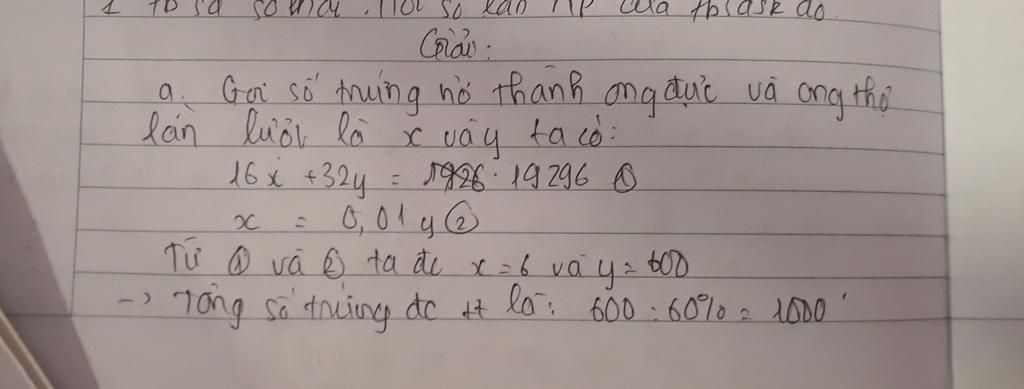 số lần NP của tb sdsk đó
Giải:
a. Gọi số trứng nở thành ong đực và ong thợ
lần lượt là x và y ta có:
16x + 32y = 19296 ①
x = 0,01 y ②
Từ ① và ② ta đc x = 6 và y = 600
-> Tổng số trứng đc tt là: 600 : 60% = 1000